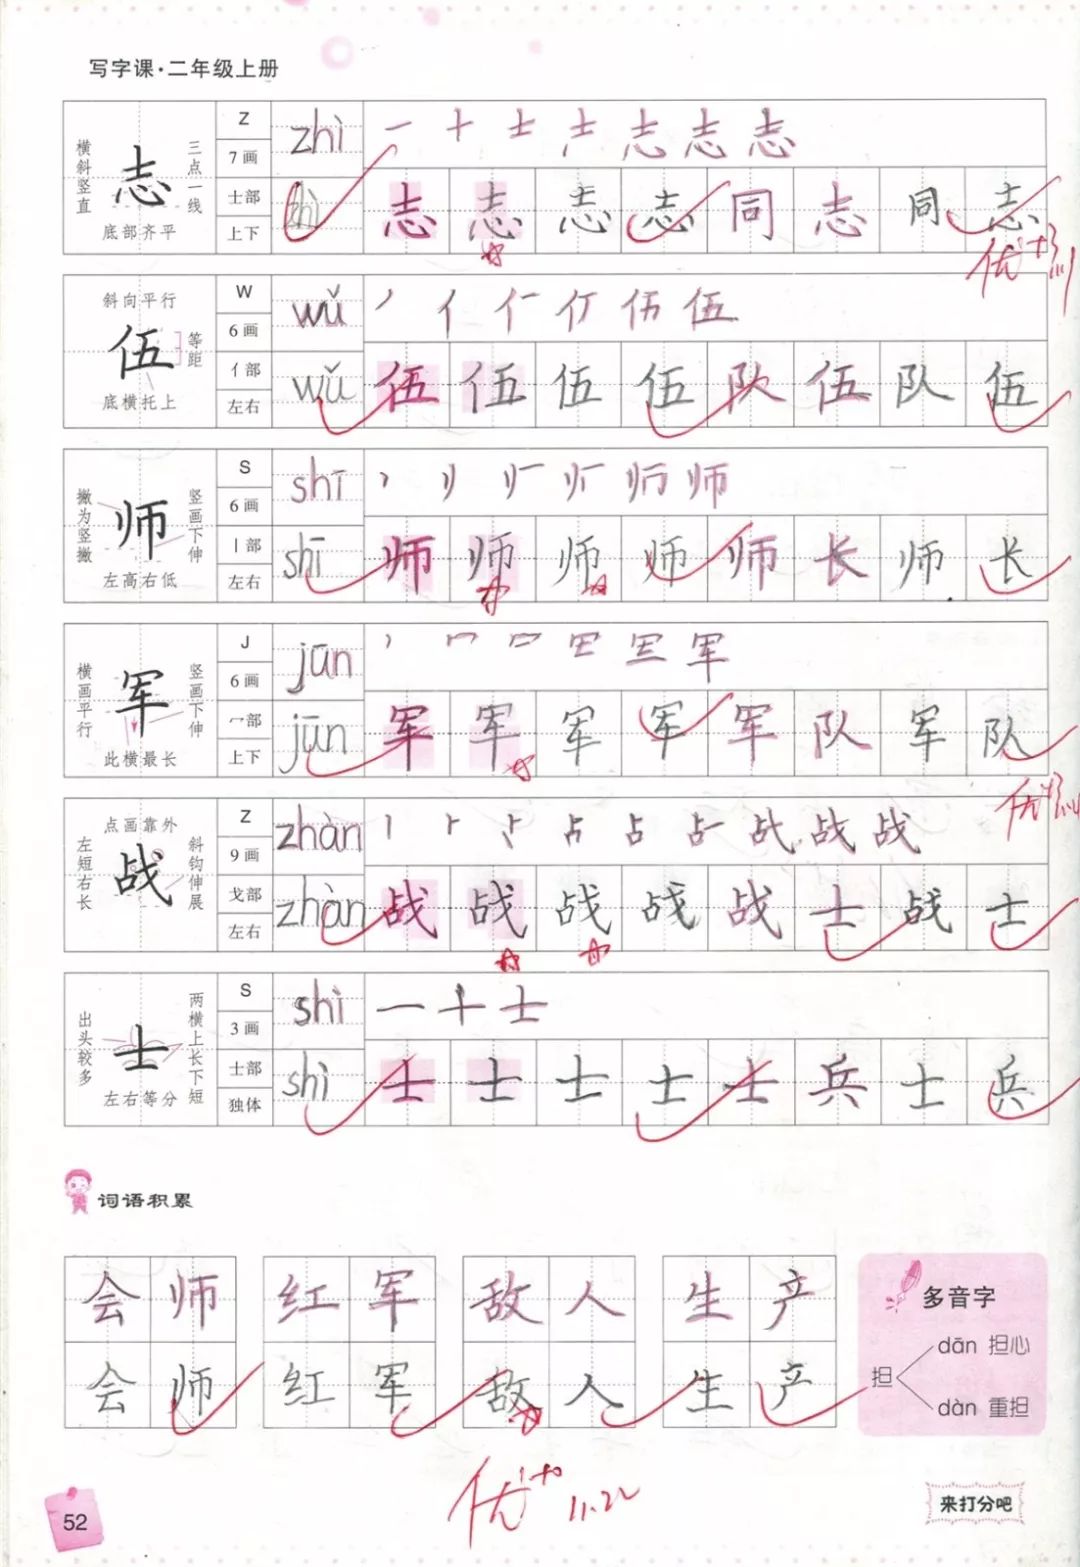 写字课·二年级上册
横斜竖直
志
三点一线
底部齐平
Z
7画
士部
上下
zhì
一 十 士 志 志 志
zhì
志 志 志 志 同 志 同 志
优
斜向平行
伍
等距
底横托上
W
6画
亻部
左右
wǔ
丿 亻 伍 伍
wǔ
伍 伍 伍 伍 队 伍 队 伍
撇为竖撇
师
竖画下伸
左高右低
S
6画
丨部
左右
shī
师 师
shī
师 师 师 师 师 长 师 长
横画平行
军
竖画下伸
此横最长
J
6画
冖部
上下
jūn
军
jūn
军 军 军 军 军 队 军 队
优
点画靠外
左短右长
战
斜钩伸展
Z
9画
戈部
左右
zhàn
丨 卜 占 占 战 战 战
zhàn
战 战 战 战 战 士 战 士
出头较多
士
两横上长下短
左右等分
S
3画
士部
独体
shì
一 十 士
shì
士 士 士 士 士 兵 士 兵
词语积累
会师 红军 敌人 生产
会师 红军 敌人 生产
多音字
担
dān 担心
dàn 重担
优 11.22
来打分吧
52